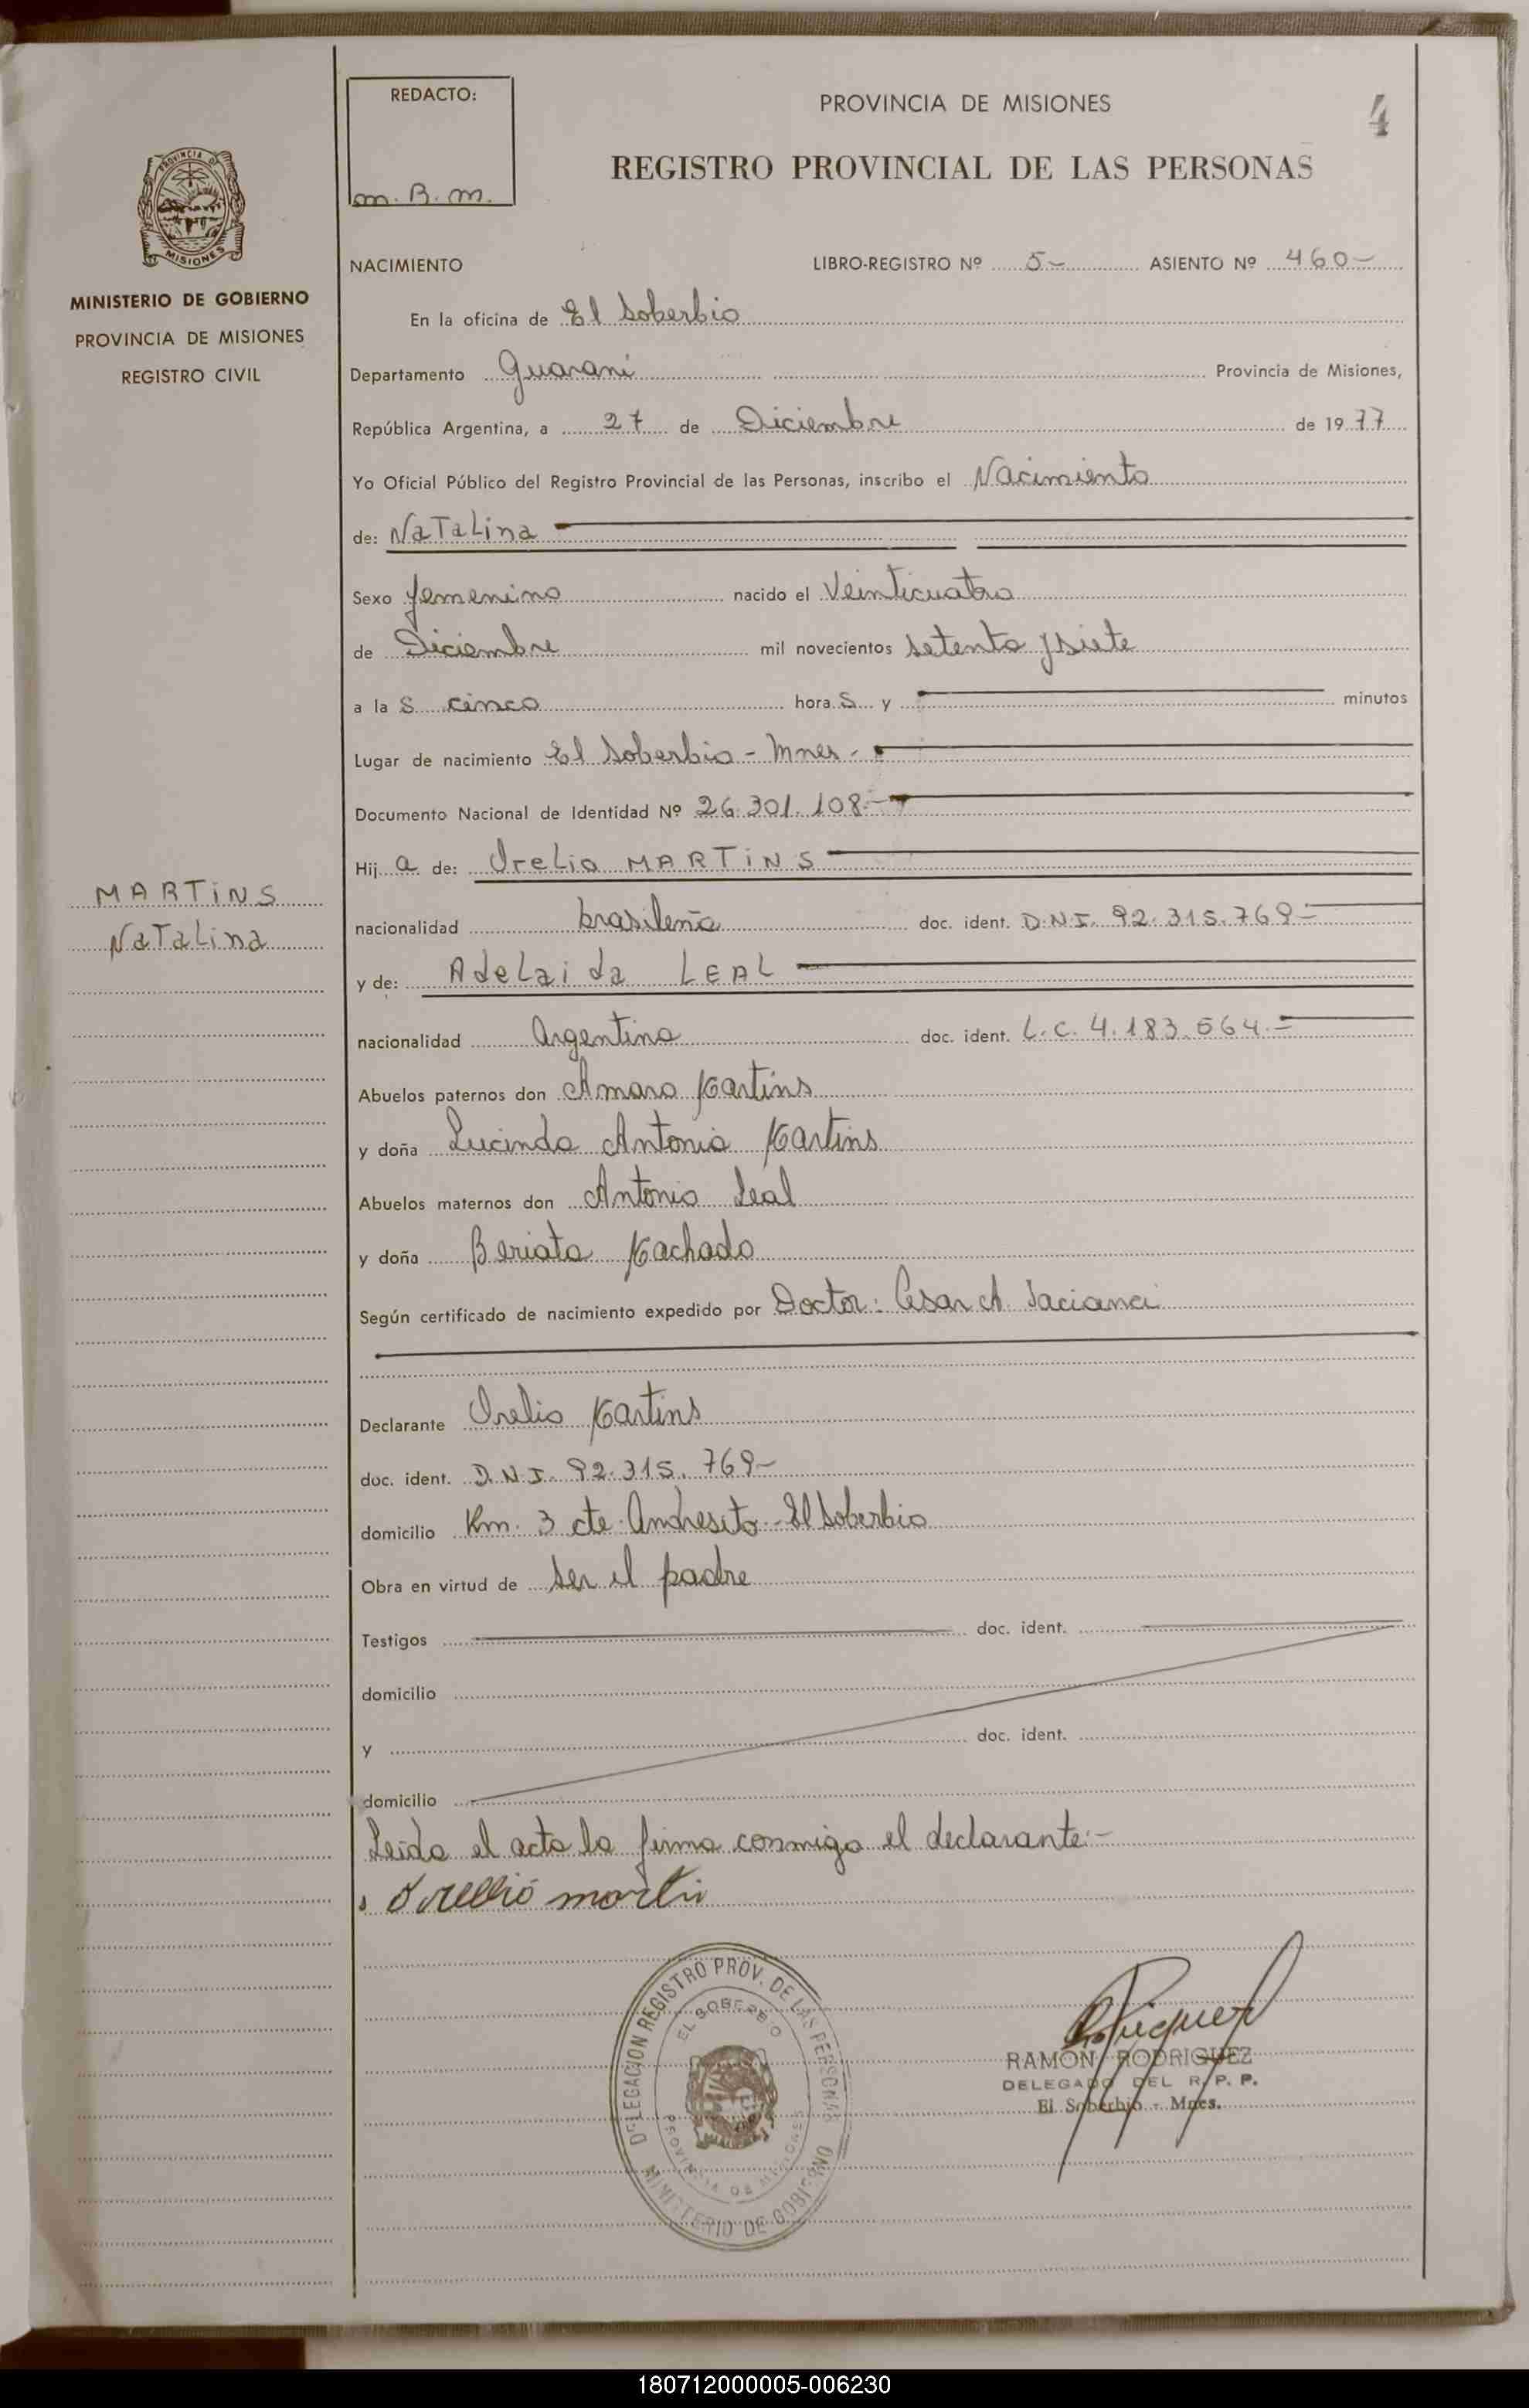 REDACTO:
m. B. m.
PROVINCIA DE MISIONES
4
REGISTRO PROVINCIAL DE LAS PERSONAS
PROVINCIA DE
MISIONES
MINISTERIO DE GOBIERNO
PROVINCIA DE MISIONES
REGISTRO CIVIL
NACIMIENTO LIBRO-REGISTRO Nº 5- ASIENTO Nº 460-
En la oficina de El Soberbio
Departamento Guarani Provincia de Misiones,
República Argentina, a 27 de Diciembre de 1977
Yo Oficial Público del Registro Provincial de las Personas, inscribo el Nacimiento
de: Natalina
Sexo femenino nacido el Veinticuatro
de Diciembre mil novecientos setenta y siete
a la s cinco hora s y minutos
Lugar de nacimiento El Soberbio - Mnes -
Documento Nacional de Identidad Nº 26.301.108.-
Hij a de: Orelio MARTINS
MARTINS
Natalina
nacionalidad brasileña doc. ident. D.N.I. 92.315.769-
y de: Adelaida LEAL
nacionalidad Argentina doc. ident. L.C. 4.183.564.-
Abuelos paternos don Amaro Martins
y doña Lucinda Antonia Martins
Abuelos maternos don Antonio Leal
y doña Beriata Machado
Según certificado de nacimiento expedido por Doctor: Cesar A.
Declarante Orelio Martins
doc. ident. D.N.I. 92.315.769-
domicilio Km. 3 cte. Andresito - El Soberbio
Obra en virtud de ser el padre
Testigos doc. ident.
domicilio
y doc. ident.
domicilio
Leida el acta la firma conmigo el declarante:-
Orellió martin
DELEGACION REGISTRO PROV. DE LAS PERSONAS
EL SOBERBIO
PROVINCIA DE MISIONES
MINISTERIO DE GOBIERNO
RAMON RODRIGUEZ
DELEGADO DEL R. P. P.
El Soberbio - Mnes.
180712000005-006230